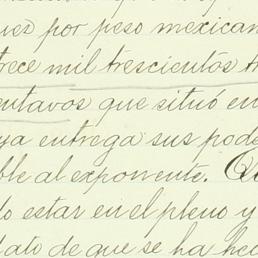 uez por peso mexican
trece mil trescientos tr
entavos que situó en
ya entrega sus pode
ble al exponente. Qu
do estar en el pleno y
dato de que se ha hec